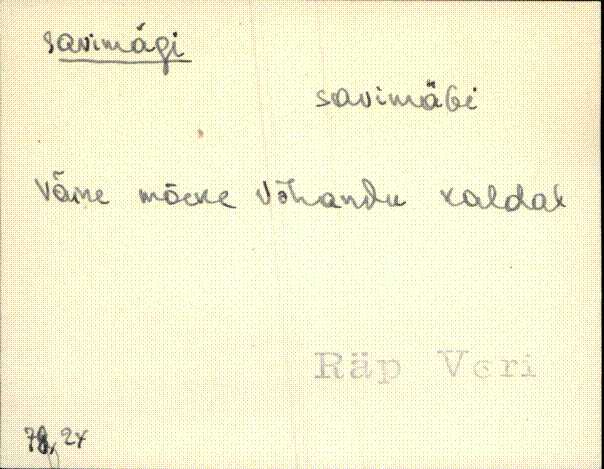 savimägi
savimäGi
Väike mäeke Võhandu kaldal
Räp Veri
78, 27